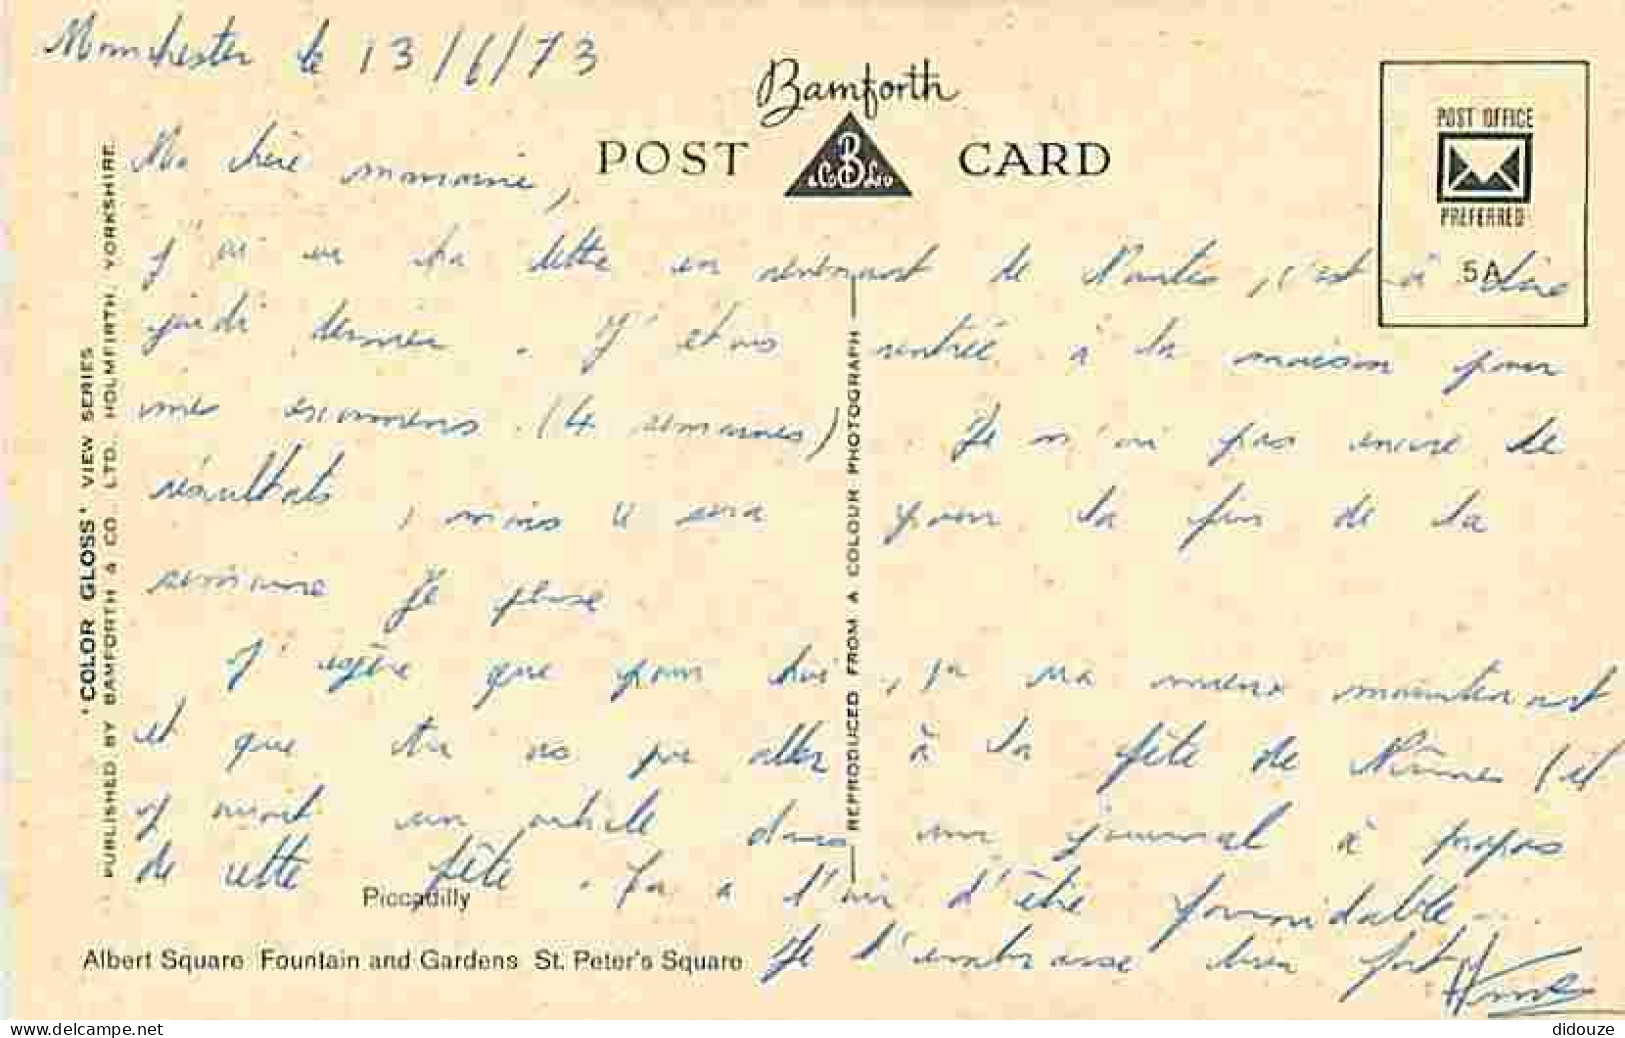 Manchester le 13/6/73
Bamforth
POST CARD
B
& Co Ltd
POST OFFICE
PREFERRED
5A
Ma chère mamanie,
J'ai eu ta lettre en revenant de Nantes, c'est à dire
jeudi dernier. J'étais rentrée à la maison pour
mes examens (4 semaines). Je n'ai pas encore de
résultats, mais ce sera pour la fin de la
semaine je pense.
J'espère que pour toi, ça va mieux maintenant
et que tu as pu aller à la fête de Nîmes (il
y avait un article dans un journal à propos
de cette fête. Ça a l'air d'être formidable...
Je t'embrasse bien fort
'COLOR GLOSS' VIEW SERIES
PUBLISHED BY BAMFORTH & CO. LTD. HOLMFIRTH, YORKSHIRE.
REPRODUCED FROM A COLOUR PHOTOGRAPH
Piccadilly
Albert Square Fountain and Gardens St. Peter's Square
www.delcampe.net
didouze